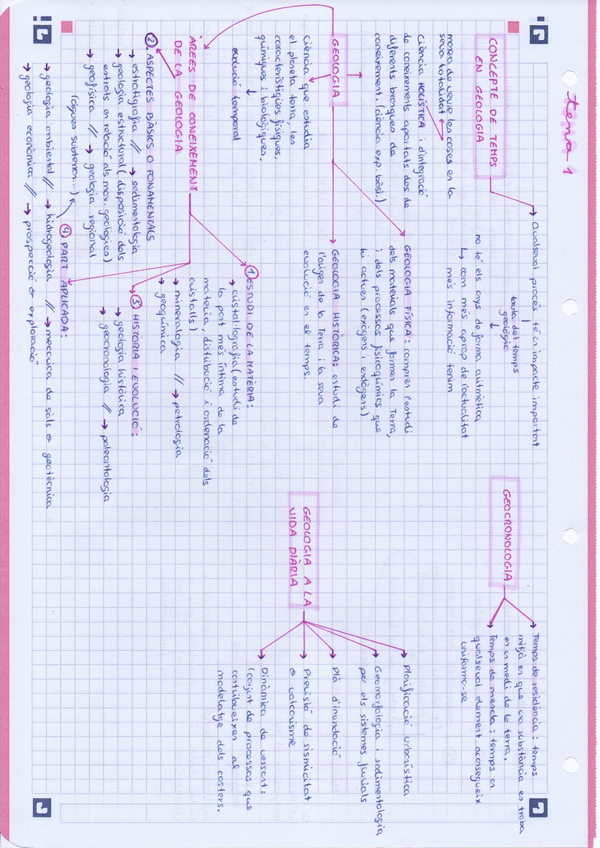 tema 1
CONCEPTE DE TEMPS
EN GEOLOGIA
manera de veure les coses en la
seva totalitat
Ciència HOLÍSTICA: d'integració
de coneixements aportats des de
diferents branques de
coneixement. (ciència exp. bàsi.)
Qualsevol procés té un impacte important
taula del temps
geològic
no té els anys de forma aritmètica
com més aprop de l'actualitat
més informació tenim
GEOLOGIA
Ciència que estudia
el planeta terra, les
característiques físiques,
químiques i biològiques.
evolució temporal
GEOLOGIA FÍSICA: compren l'estudi
dels materials que formen la Terra,
i dels processos fisicoquímics que
hi actuen (exògens i endògens)
GEOLOGIA HISTÒRICA: estudi de
l'origen de la Terra i la seva
evolució en el temps.
ÀREES DE CONEIXEMENT
DE LA GEOLOGIA
1 ESTUDI DE LA MATÈRIA:
cristal·lografia (estudi de
la part més íntima de la
matèria, distribució i ordenació dels
cristalls)
mineralogia // petrologia
geoquímica
2. ASPECTES BÀSICS O FONAMENTALS
estratigrafia // sedimentologia
geologia estructural (disposició dels
estrats en relació als mov. geològics)
geofísica // geologia regional
(aigües subterràn...)
3 HISTÒRIA I EVOLUCIÓ:
geologia històrica
geocronologia // paleontologia
4 PART APLICADA:
geologia ambiental // hidrogeologia // mecànica de sòls o geotècnica
geologia econòmica // prospecció o exploració
GEOCRONOLOGIA
Temps de residència: temps
mitjà en que una substància es troba
en un medi de la terra.
Temps de mescla: temps en
qualsevol element aconsegueix
uniforme-se
GEOLOGIA A LA
VIDA DIÀRIA
Planificació urbanística
Geomorfologia i sedimentologia
per els sistemes fluvials
Plà d'inundació
Previsió de sismicitat
o volcanisme
Dinàmica de vessants
(conjunt de processos que
contribueixen al
modelatge dels costers.